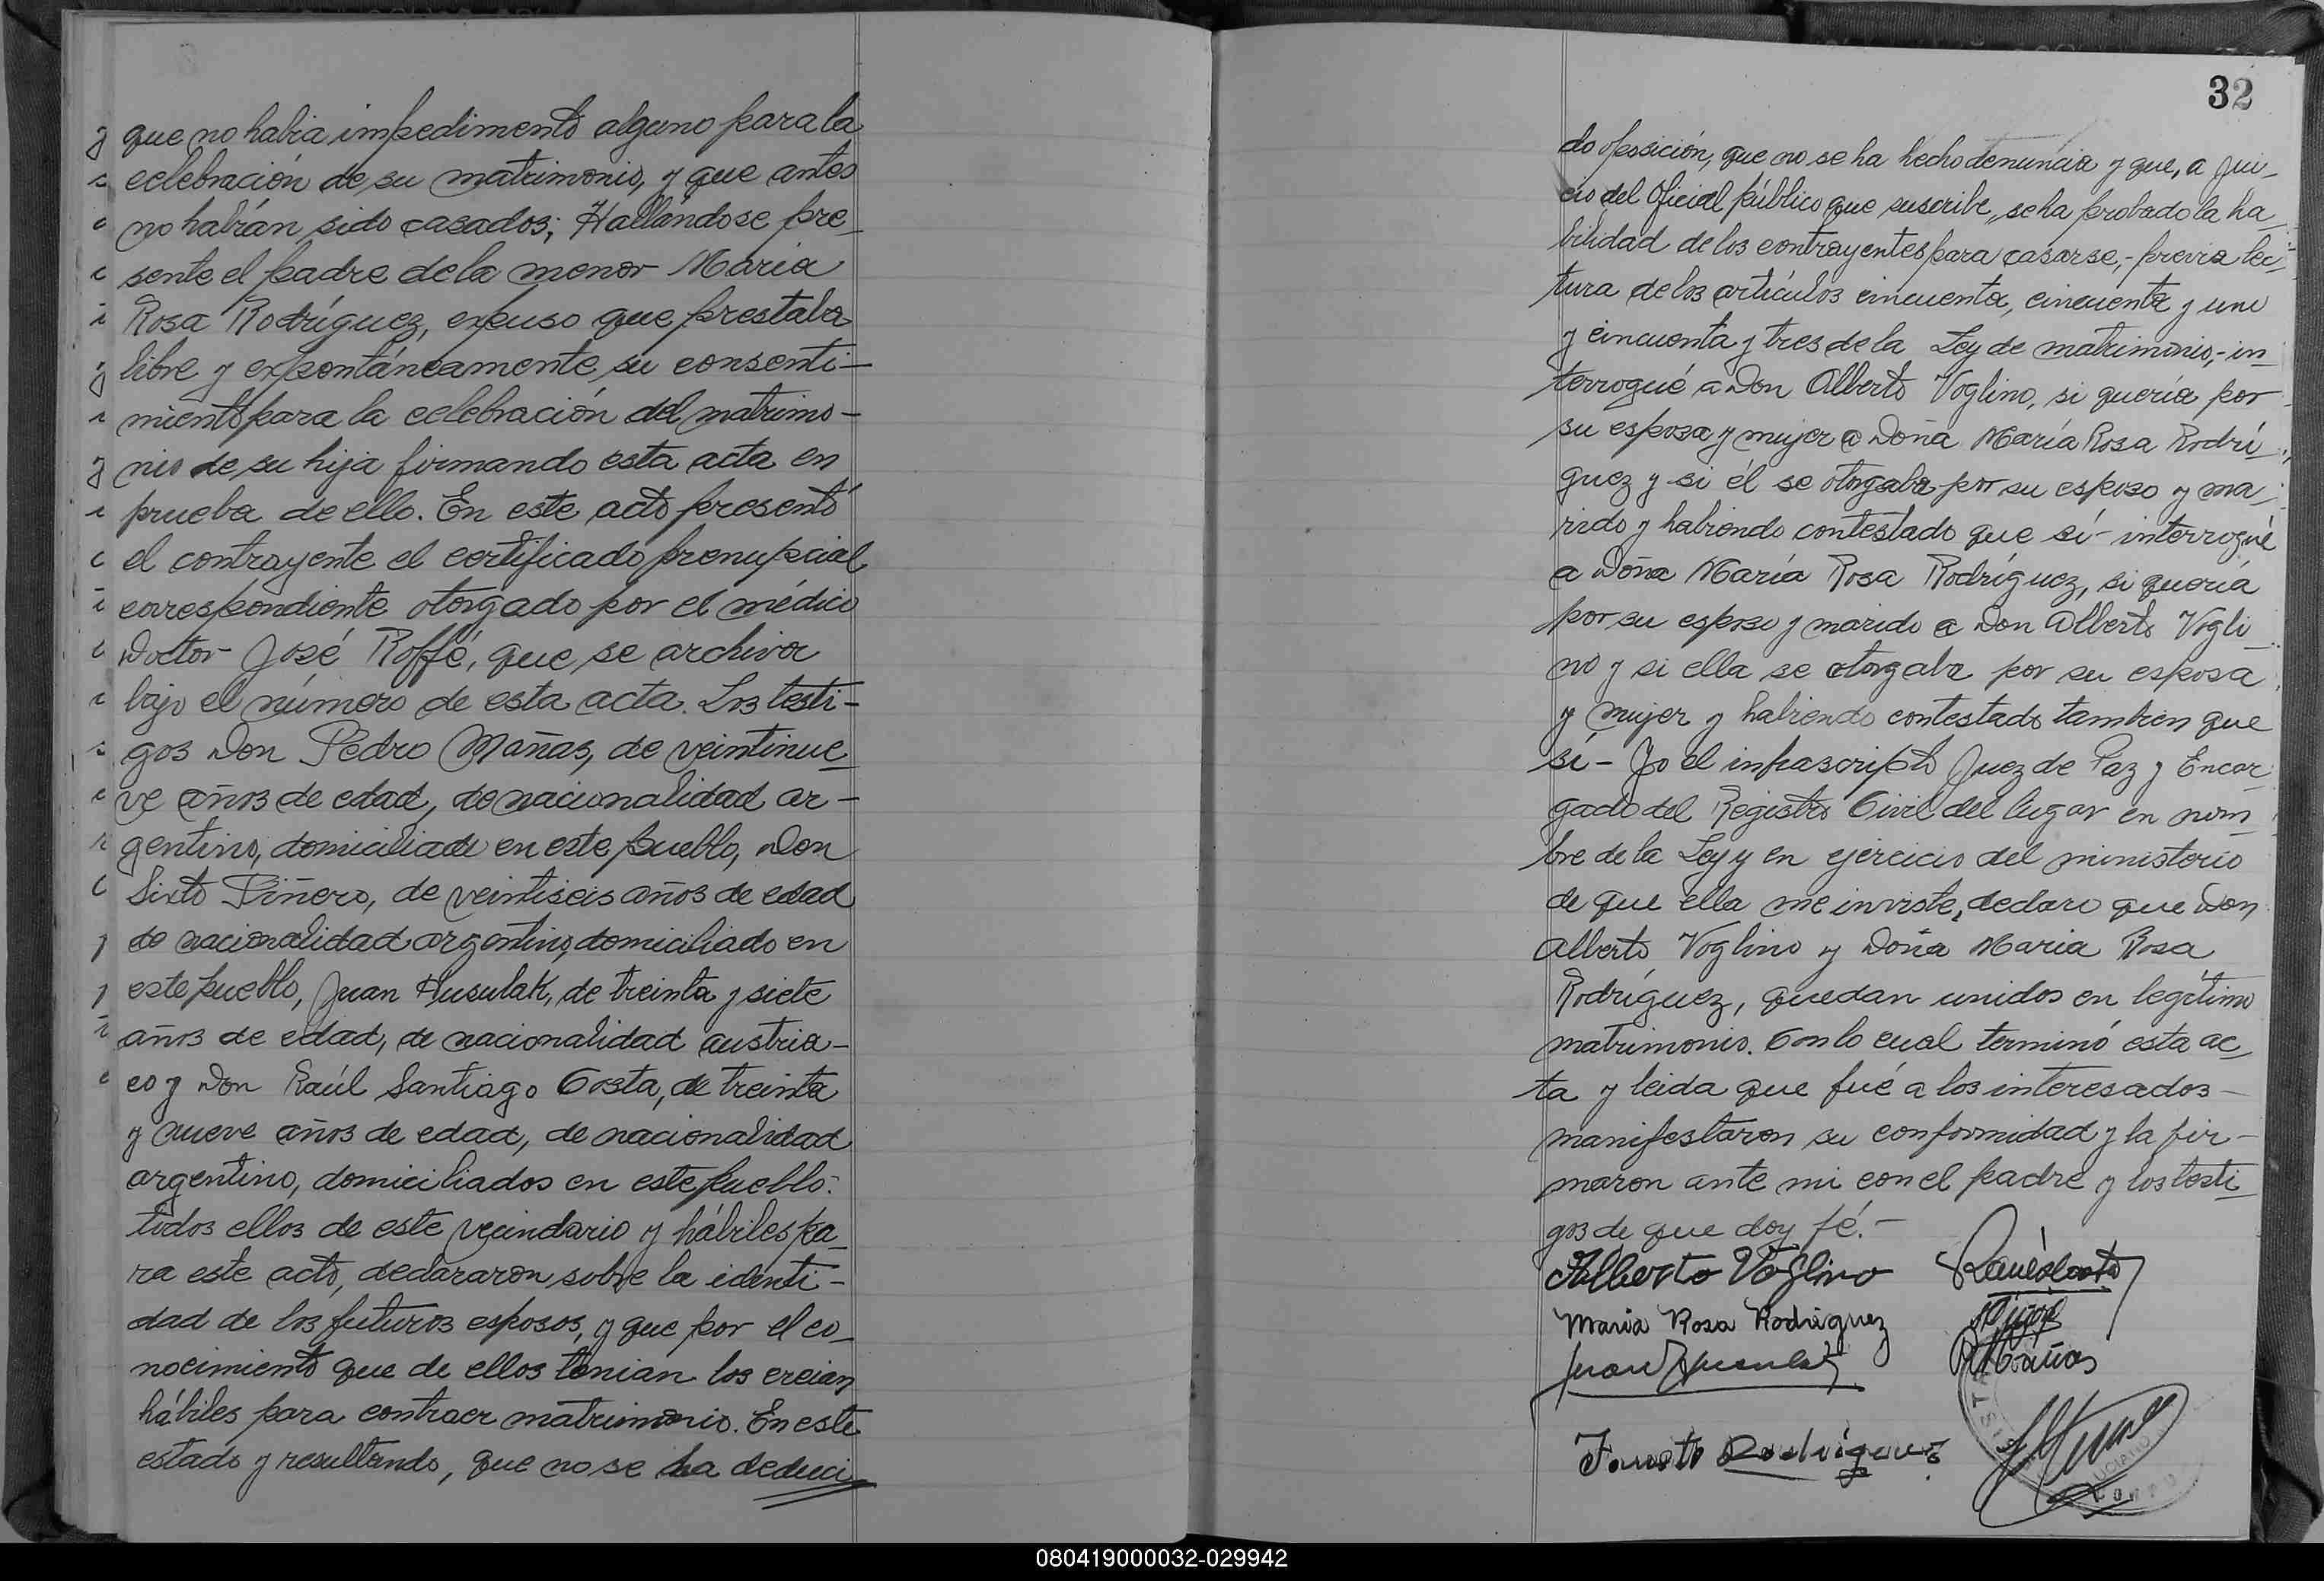 que no habia impedimento alguno para la
celebración de su matrimonio, y que antes
no habían sido casados; Hallándose pre_
sente el padre de la menor María
Rosa Rodríguez, expuso que prestaba
libre y expontáneamente su consenti-
miento para la celebración del matrimo-
nio de su hija firmando esta acta en
prueba de ello. En este acto presentó
el contrayente el certificado prenupcial
correspondiente otorgado por el médico
Doctor José Roffé, que se archiva
bajo el número de esta acta. Los testi-
gos Don Pedro Mañas, de veintinue_
ve años de edad, de nacionalidad ar-
gentino, domiciliado en este pueblo, Don
Sixto Piñero, de veintiseis años de edad
de nacionalidad argentino, domiciliado en
este pueblo, Juan Husulak, de treinta y siete
años de edad, de nacionalidad austria-
co y Don Raúl Santiago Costa, de treinta
y nueve años de edad, de nacionalidad
argentino, domiciliados en este pueblo.
todos ellos de este vecindario y hábiles pa_
ra este acto, declararon sobre la identi-
dad de los futuros esposos, y que por el co_
nocimiento que de ellos tenian los creian
hábiles para contraer matrimonio. En este
estado y resultando, que no se ha deduci
32
do oposición, que no se ha hecho denuncia y que, a jui_
cio del Oficial público que suscribe, se ha probado la ha_
bilidad de los contrayentes para casarse,- previa lec-
tura de los artículos cincuenta, cincuenta y uno
y cincuenta y tres de la Ley de matrimonio,- in_
terrogué a Don Alberto Voglino, si quería por
su esposa y mujer a Doña María Rosa Rodrí_
guez y si él se otorgaba por su esposo y ma_
rido y habiendo contestado que sí- interrogué
a Doña María Rosa Rodríguez, si quería
por su esposo y marido a Don Alberto Vogli_
no y si ella se otorgaba por su esposa
y mujer y habiendo contestado tambien que
sí- Yo el infrascripto Juez de Paz y Encar
gado del Registro Civil del lugar en nom_
bre de la Ley y en ejercicio del ministerio
de que ella me inviste, declaro que Don
Alberto Voglino y Doña Maria Rosa
Rodríguez, quedan unidos en legítimo
matrimonio. Con lo cual terminó esta ac_
ta y leida que fué a los interesados-
manifestaron su conformidad y la fir-
maron ante mi con el padre y los testi_
gos de que doy fé.-
Alberto Voglino
Maria Rosa Rodriguez
Juan Husulak
Rodriguez
080419000032-029942